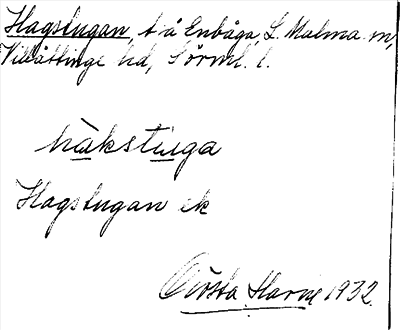 Hagstugan, t å Enbåga, L. Malma sn,
Villåttinge hd, Sörml. l.
hàkstuga
Hagstugan ek
Gösta 1932.